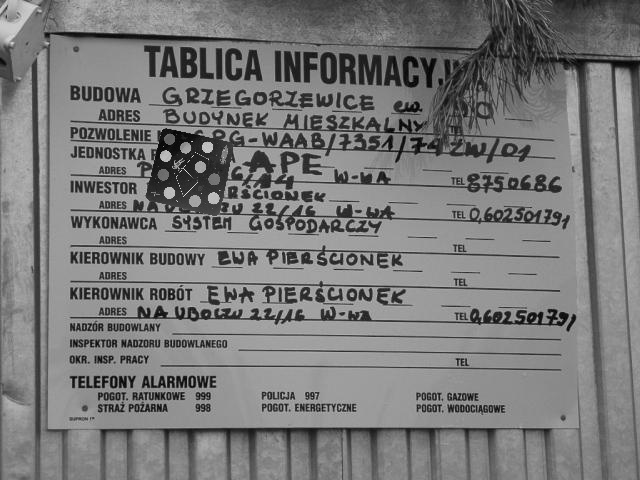 TABLICA INFORMACYJ
BUDOWA GRZEGORZEWICE
ADRES BUDYNEK MIESZKALNY
POZWOLENIE RG-WAAB/7351/74 ZW/01
JEDNOSTKA APE
ADRES W-WA TEL 8750686
INWESTOR RŚCIONEK
ADRES NA UBOCZU 22/16 W-WA TEL 0,602501791
WYKONAWCA SYSTEM GOSPODARCZY
ADRES TEL
KIEROWNIK BUDOWY EWA PIERŚCIONEK
ADRES TEL
KIEROWNIK ROBÓT EWA PIERŚCIONEK
ADRES NA UBOCZU 22/16 W-WA TEL 0,602501791
NADZÓR BUDOWLANY
INSPEKTOR NADZORU BUDOWLANEGO
OKR. INSP. PRACY TEL
TELEFONY ALARMOWE
POGOT. RATUNKOWE 999 POLICJA 997 POGOT. GAZOWE
STRAŻ POŻARNA 998 POGOT. ENERGETYCZNE POGOT. WODOCIĄGOWE